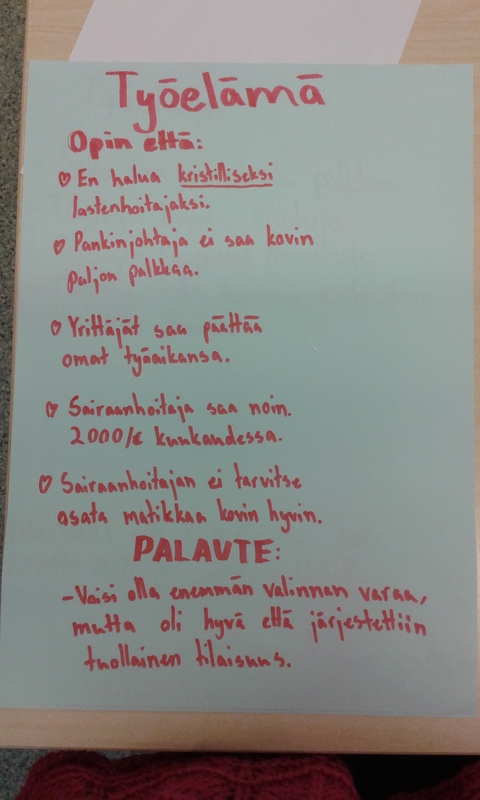 Työelämä
Opin että:
♡ En halua kristilliseksi
lastenhoitajaksi.
♡ Pankinjohtaja ei saa kovin
paljon palkkaa.
♡ Yrittäjät saa päättää
omat työaikansa.
♡ Sairaanhoitaja saa noin.
2000/€ kuukaudessa.
♡ Sairaanhoitajan ei tarvitse
osata matikkaa kovin hyvin.
PALAUTE:
-Voisi olla enemmän valinnan varaa,
mutta oli hyvä että järjestettiin
tuollainen tilaisuus.